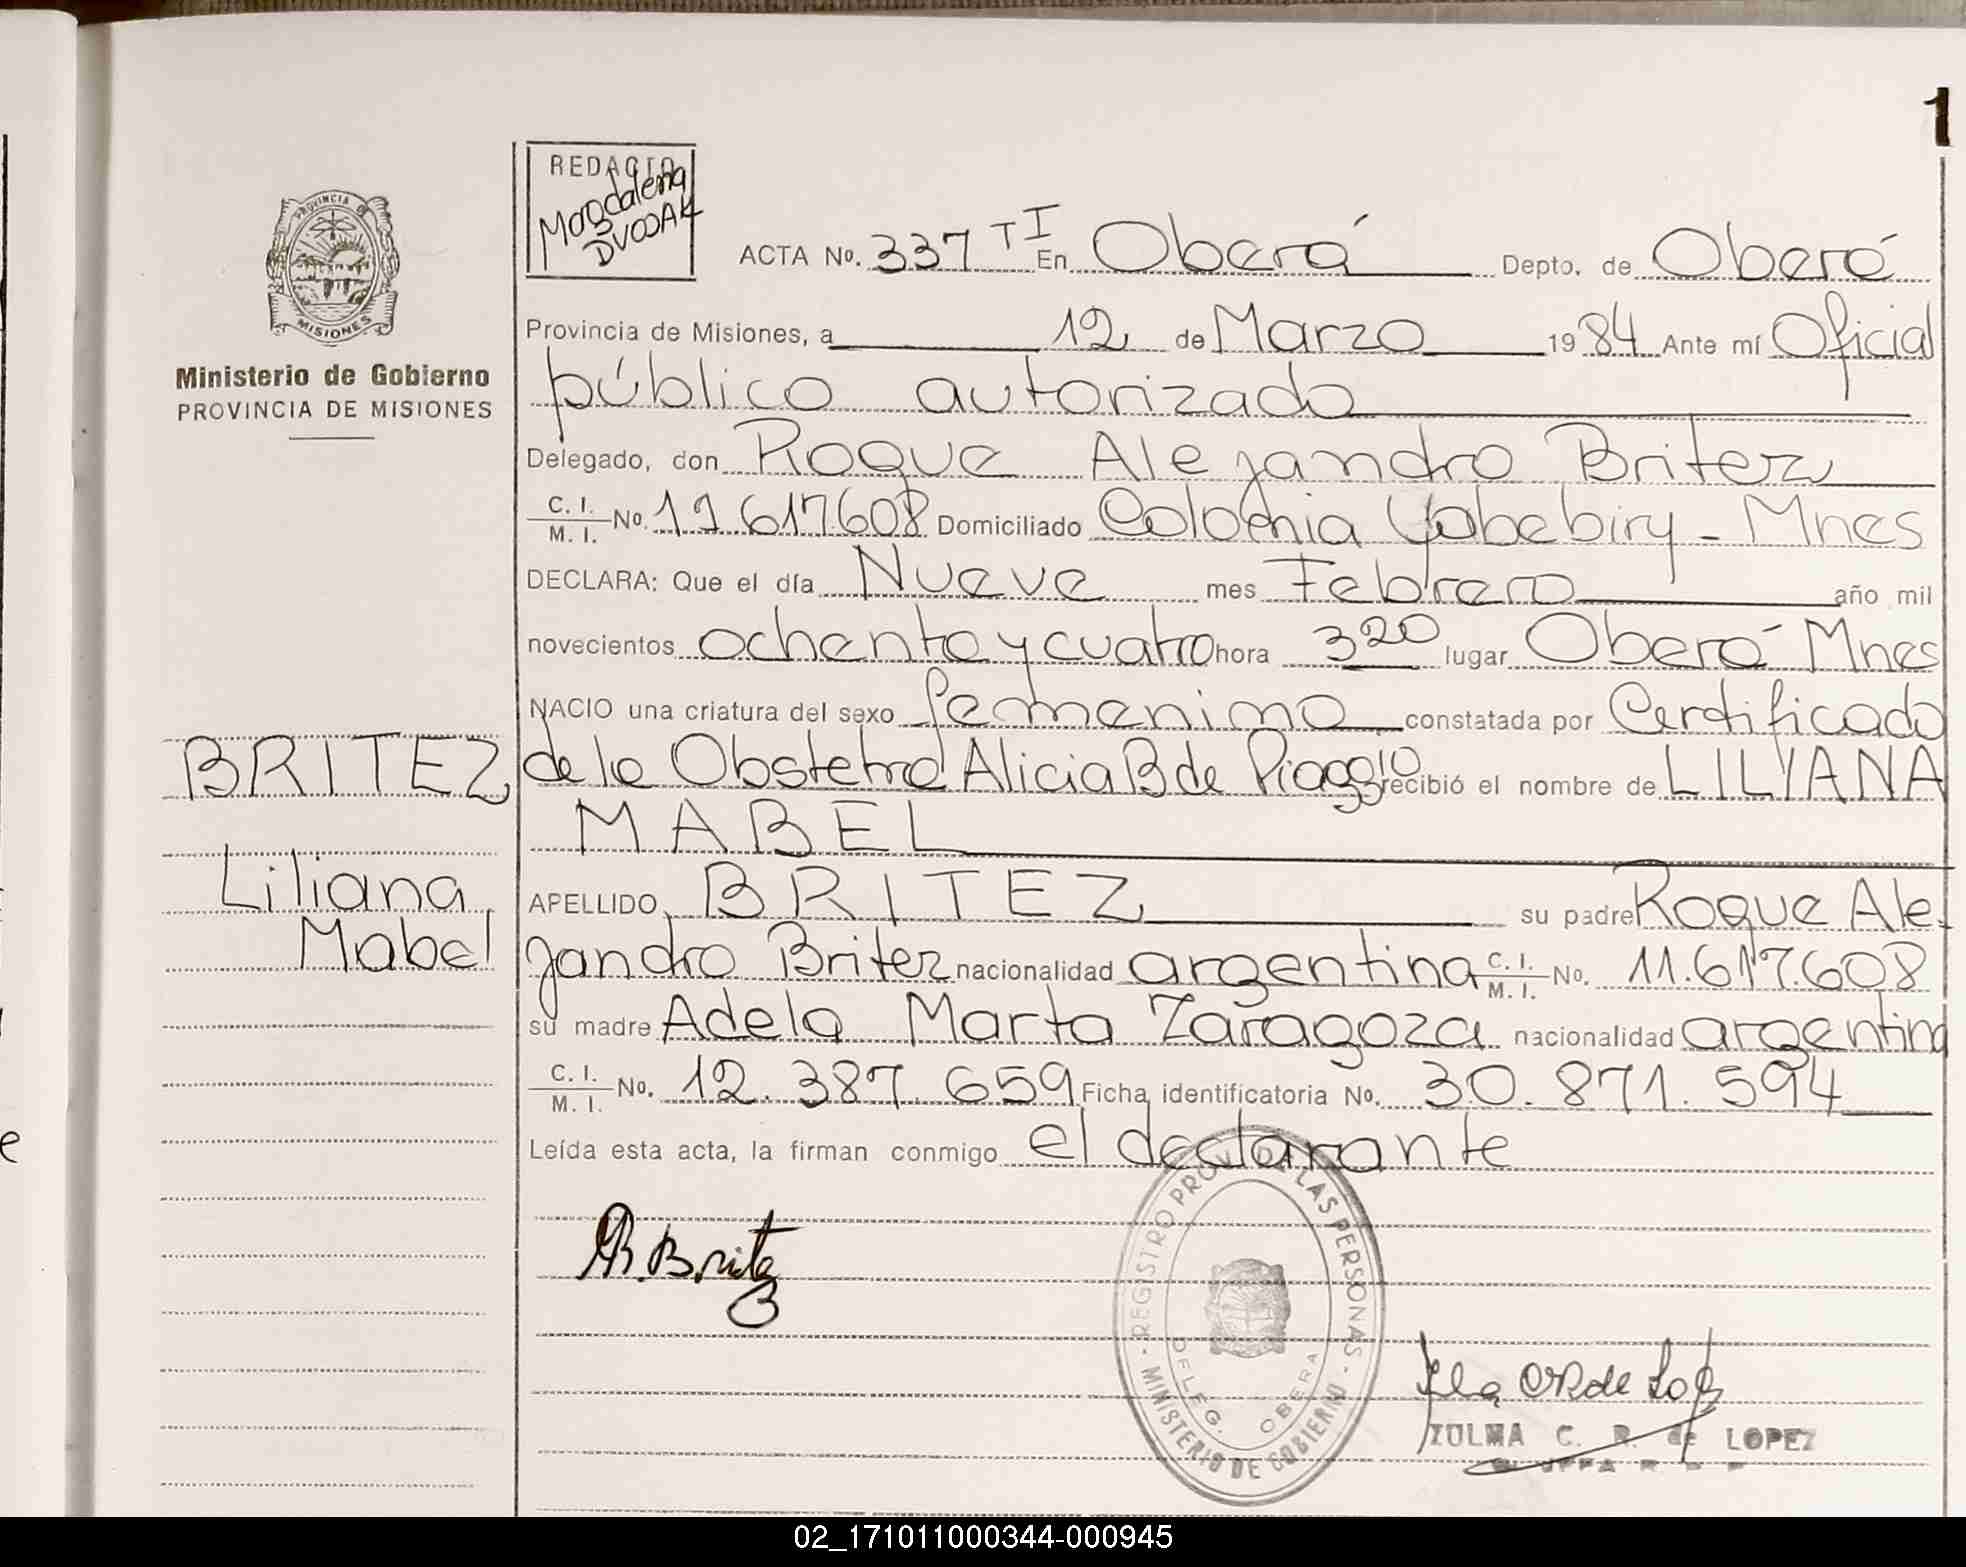 1
REDACTO
Magdalena
DVODAK
PROVINCIA DE
MISIONES
Ministerio de Gobierno
PROVINCIA DE MISIONES
ACTA No. 337 TI En Oberá Depto. de Oberá
Provincia de Misiones, a 12 de Marzo 1984 Ante mí Oficial
público autorizado
Delegado, don Roque Alejandro Britez
C. I. / M. I. No. 11.617.608 Domiciliado Colonia Yabebiry - Mnes
DECLARA: Que el día Nueve mes Febrero año mil
novecientos ochenta y cuatro hora 3 20 lugar Oberá Mnes
NACIO una criatura del sexo femenino constatada por Certificado
de la Obstetra Alicia B de Piaggio recibió el nombre de LILIANA
MABEL
BRITEZ
Liliana
Mabel
APELLIDO BRITEZ su padre Roque Ale-
jandro Britez nacionalidad argentina C. I. / M. I. No. 11.617.608
su madre Adela Marta Zaragoza nacionalidad argentina
C. I. / M. I. No. 12.387.659 Ficha identificatoria No. 30.871.594
Leída esta acta, la firman conmigo el declarante
REGISTRO PROV. DE LAS PERSONAS - MINISTERIO DE GOBIERNO -
DELEG. OBERA
R. Britez
ZULMA C. R. de LOPEZ
e
02_171011000344-000945